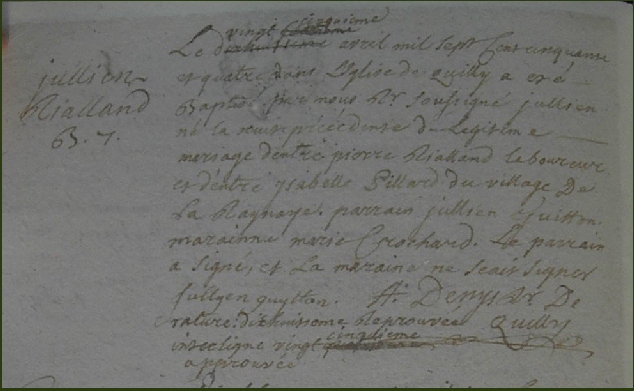 jullien
Rialland
B. 7.
vingt cinqaieme
Le dixhuitieme avril mil sept Cent cinquante
et quatre dans L'Eglise de Quilly a eté
Baptisé par nous Rr soussigné jullien
né la nuit précédente du Legitime
mariage dentre pierre Rialland laboureur
et dentre ysabelle Pillard du village De
La Ragnaye. parrain jullien Guitton
marainne marie Crochard. Le parrain
a signé, et La maraine ne scait signer
jullyen guytton. A. Denys Rr De
rature dixhuitieme Reprouvée Quilly
cinquieme
interligne vingt
approuvée